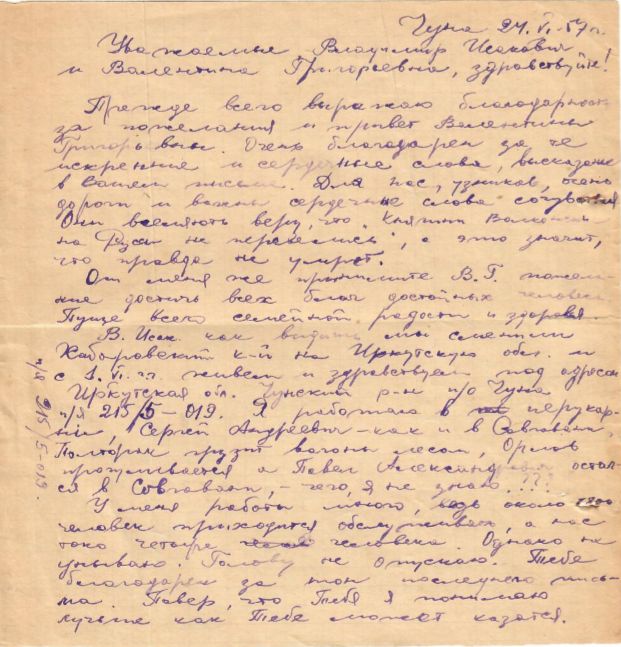 Чуна 24.VI.57 г.
Уважаемые Владимир Исакович
и Валентина Григорьевна, здравствуйте!
Прежде всего выражаю благодарность
за пожелания и привет Валентины
Григорьевны. Очень благодарен за те
искренние и сердечные слова, высказаные
в Вашем письме. Для нас, узников, очень
дороги и важны сердечные слова сочувствия
Они вселяють веру, что "Княгини Волконски
на Руси не перевелись", а это значит,
что правда не умрёт.
От меня же примите В.Г. пожела-
ние достичь всех благ достойных человека.
Пуще всего семейной радости и здоровя.
В. Исак. как видишь мы сменили
Хабаровский к-й на Иркутскую обл. и
с 1.VI. живем и здравствуем под адресом
Иркутская обл. Чунский р-н п/о Чуна
п/я 215/5-019. Я работаю в перукар-
ні, Сергей Андреевич - как и в Совгавани,
грузит вагоны лесом, Орлов
а Павел Александрович остал-
ся в Совгавани, - чего, я не знаю. ???
У меня работы много, ведь около 1200
человек приходится обслуживать, а нас
токо четыре человека. Однако не
унываю. Голову не опускаю. Тебе
благодарен за тон последнего пись-
ма. Повер, что Тебя я понимаю
лучьше как Тебе может казатся.
п/я 215/5-019.